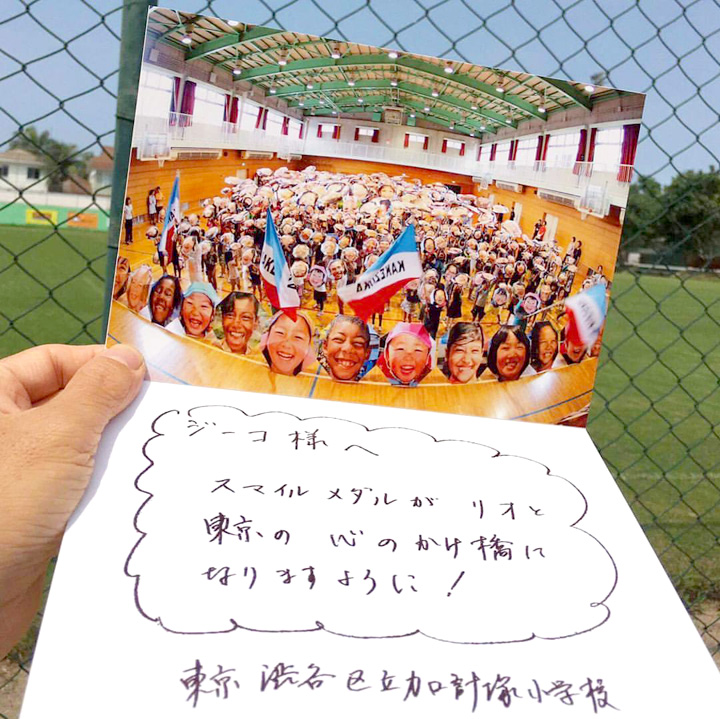 KANEZUKA
ジーコ様へ
スマイルメダルが リオと
東京の 心のかけ橋に
なりますように!
東京 渋谷区立加計塚小学校